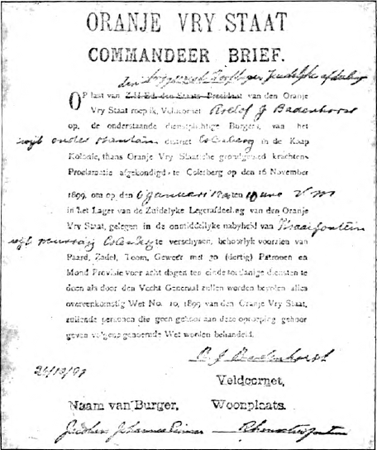 ORANJE VRY STAAT
COMMANDEER BRIEF.
OP last van Z.H.Ed. den Staats-President van den Oranje
Vry Staat roep ik, Veldcornet Roelof J Badenhorst
op, de onderstaande dienstplichtige Burgers, van het
wijk onder district Colesberg in de Kaap
Kolonie, thans Oranje Vry Staatsche grondgebied krachtens
Proclamatie afgekondigd te Colesberg op den 16 November
1899, om op den 6 januari ten 10 ure V M
in het Lager van de Zuidelyke Legerafdeeling van den Oranje
Vry Staat, gelegen in de onmiddelyke nabyheid van
te verschynen, behoorlyk voorzien van
Paard, Zadel, Toom, Geweer met 30 (dertig) Patronen en
Mond Provisie voor acht dagen ten einde zoodanige diensten te
doen als door den Vecht Generaal zullen worden bevolen alles
overeenkomstig Wet No. 10, 1899 van den Oranje Vry Staat,
zullende personen die geen gehoor aan deze oproeping gehoor
geven volgens genoemde Wet worden behandeld.
R. J. Badenhorst
Veldcornet,
Naam van Burger. Woonplaats.
Johannes